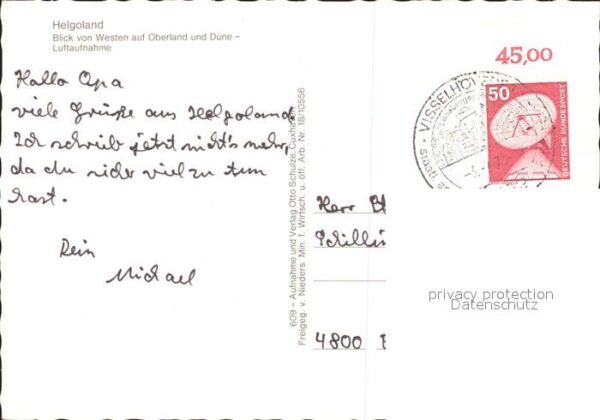 Helgoland
Blick von Westen auf Oberland und Düne –
Luftaufnahme
Hallo Opa
viele Grüße aus Helgoland
Ich schreib jetzt nicht's mehr,
da du sicher viel zu tun
hast.
Dein
Michael
609 – Aufnahme und Verlag Otto Schulze, Cuxha
Freigeg. v. Nieders. Min. f. Wirtsch. u. öff. Arb. Nr. 18/10556
45,00
50
DEUTSCHE BUNDESPOST
VISSELHÖ
Herr
Schillin
4800
privacy protection
Datenschutz